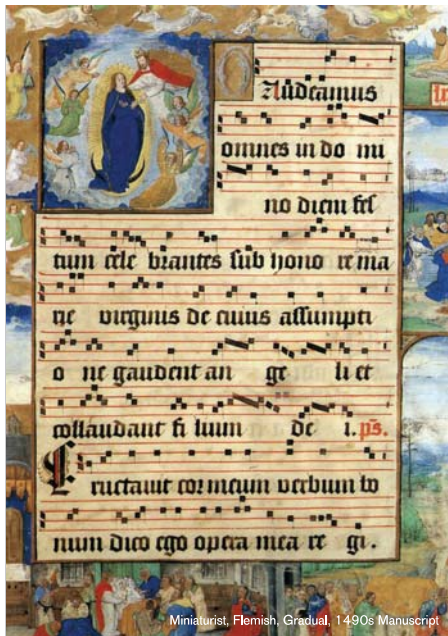 Audeamus
omnes in do mi
no diem fes
tum cele brantes sub hono re ma
rie virginis de cuius assumpti
o ne gaudent an ge li et
collaudant fi lium de i. ps.
Eructauit cor meum verbum bo
num dico ego opera mea re gi.
Miniaturist, Flemish. Gradual, 1490s Manuscript